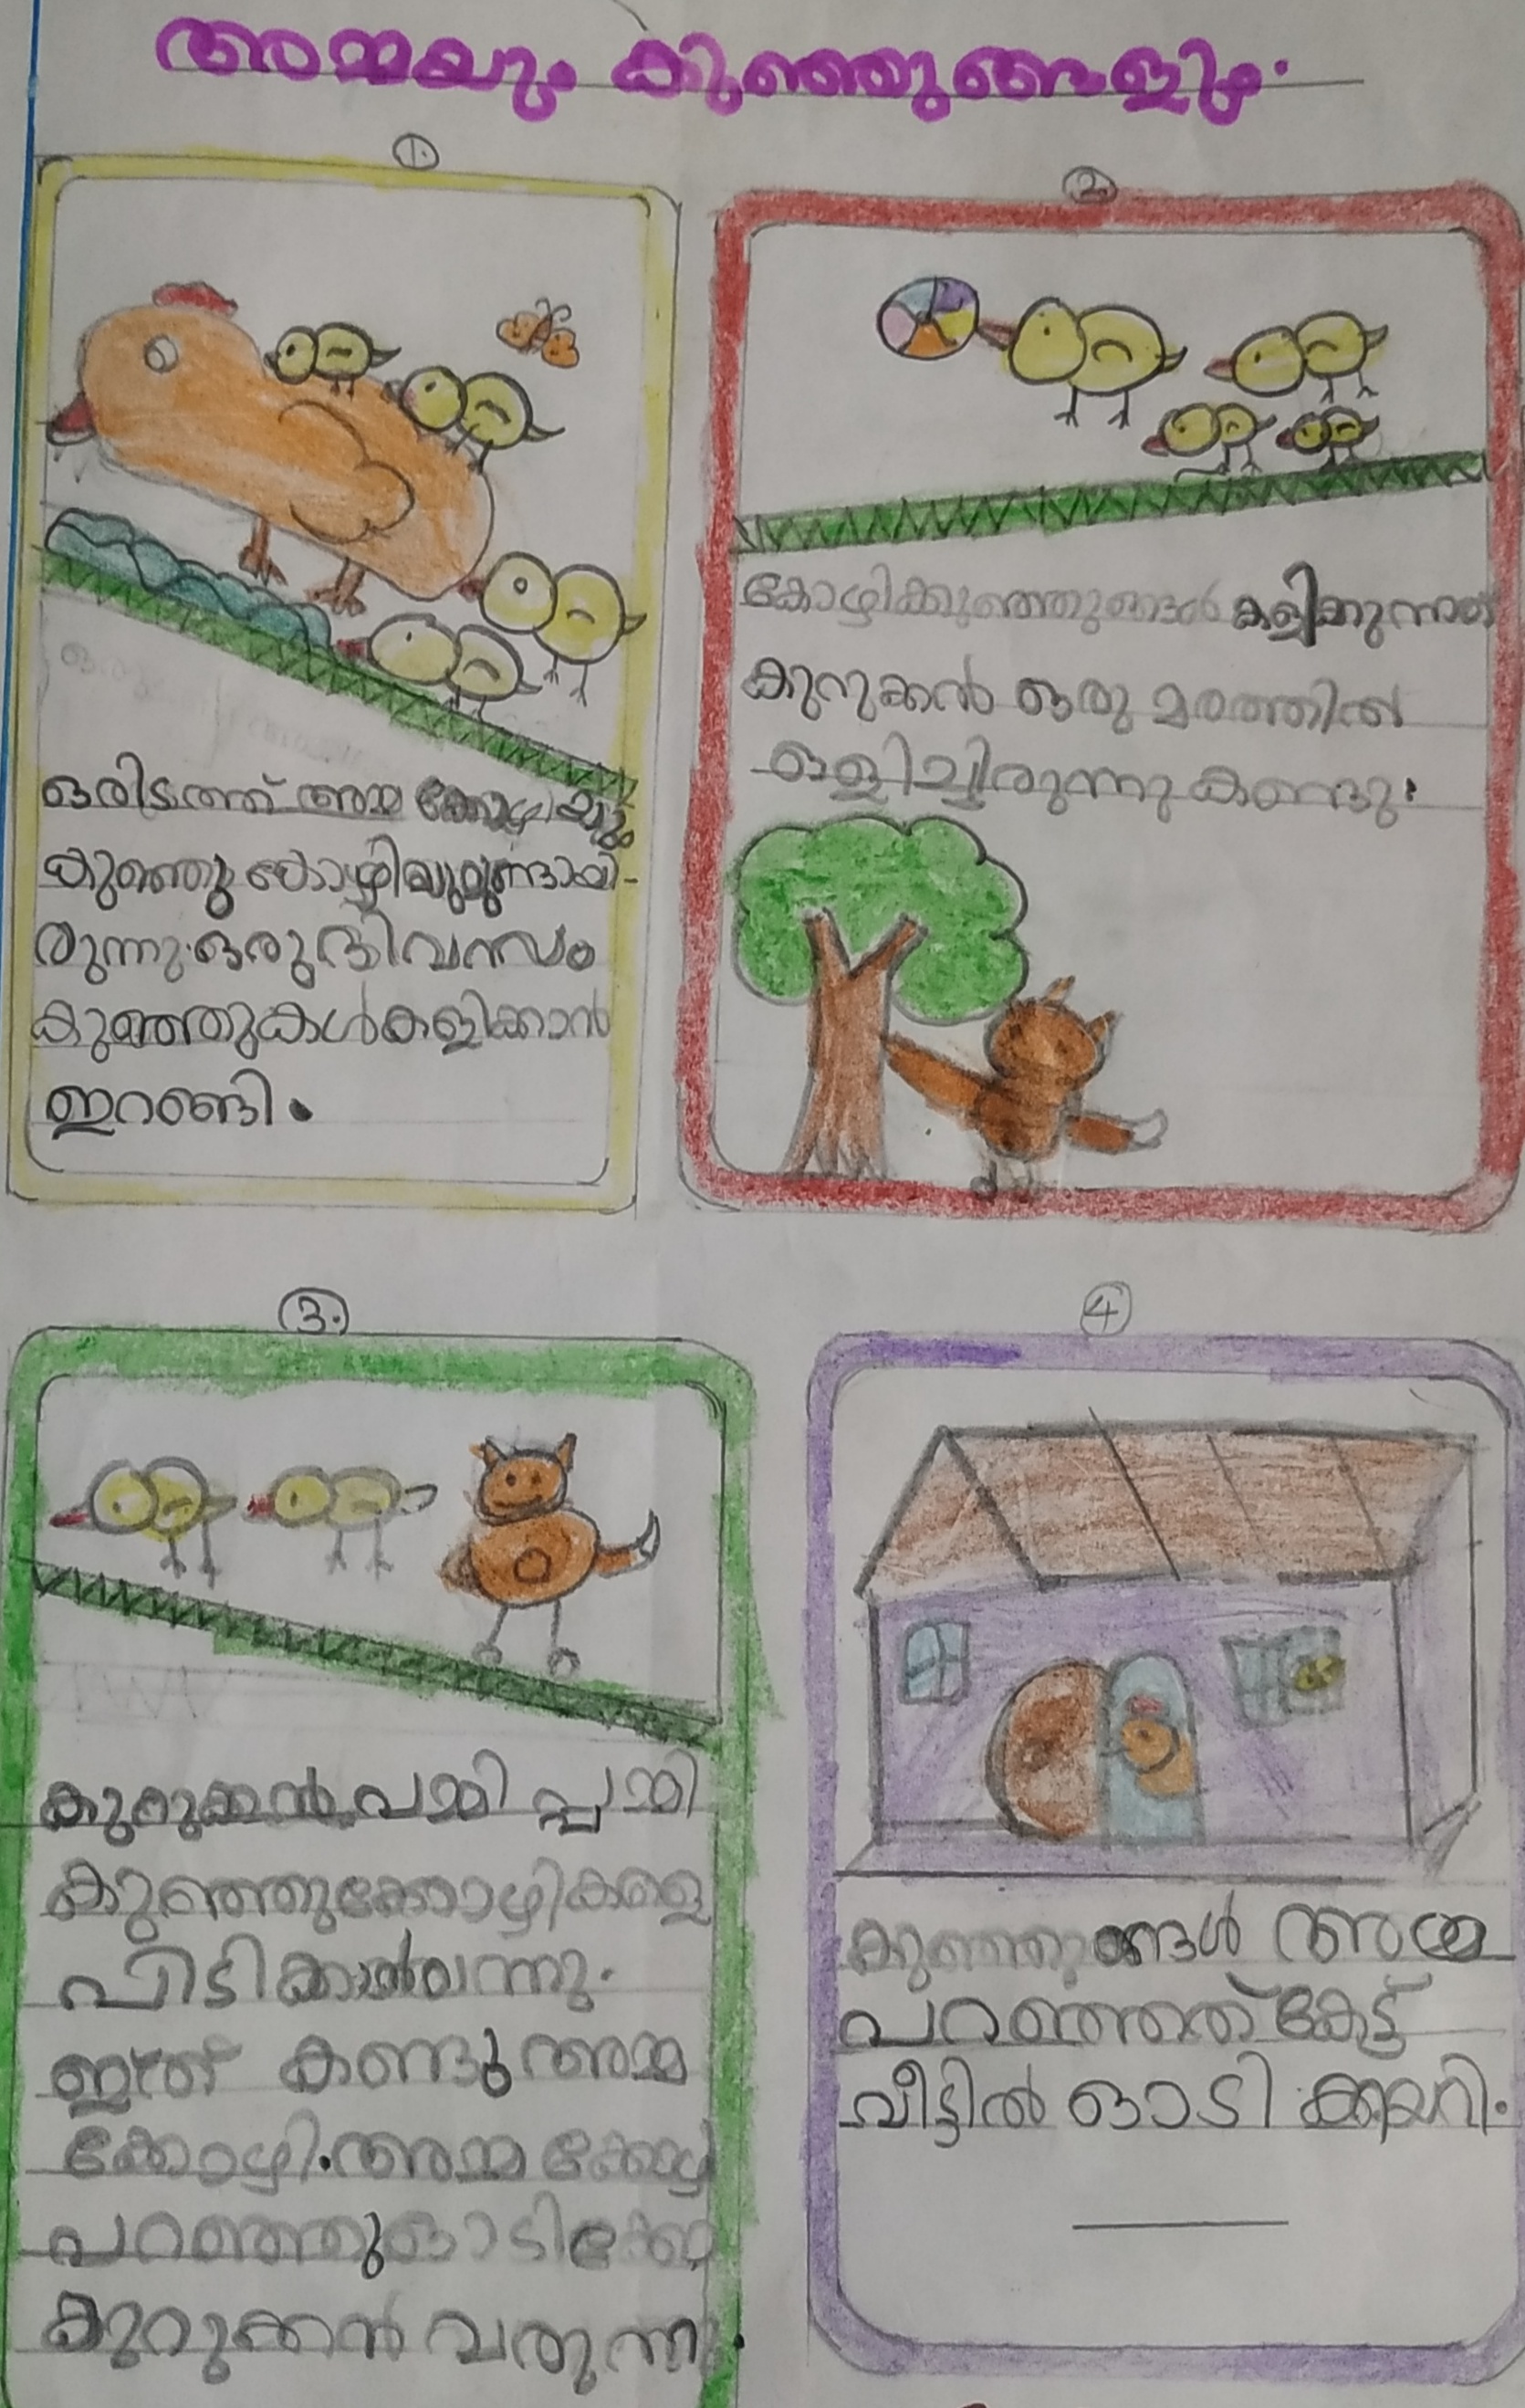 അമ്മയും കുഞ്ഞുങ്ങളും.
1.
ഒരിടത്ത് അമ്മ കോഴിയും
കുഞ്ഞു കോഴിയുമുണ്ടായി-
രുന്നു. ഒരു ദിവസം
കുഞ്ഞുകൾ കളിക്കാൻ
ഇറങ്ങി.
2.
കോഴിക്കുഞ്ഞുങ്ങൾ കളിക്കുന്നത്
കുറുക്കൻ ഒരു മരത്തിൽ
ഒളിച്ചിരുന്നു കണ്ടു.
3.
കുറുക്കൻ പമ്മി പ്പമ്മി
കുഞ്ഞുക്കോഴികളെ
പിടിക്കാൻ വന്നു.
ഇത് കണ്ടു അമ്മ
ക്കോഴി. അമ്മ ക്കോഴി
പറഞ്ഞു ഓടിക്കോ
കുറുക്കൻ വരുന്നു.
4
കുഞ്ഞുങ്ങൾ അമ്മ
പറഞ്ഞത് കേട്ട്
വീട്ടിൽ ഓടി ക്കയറി.